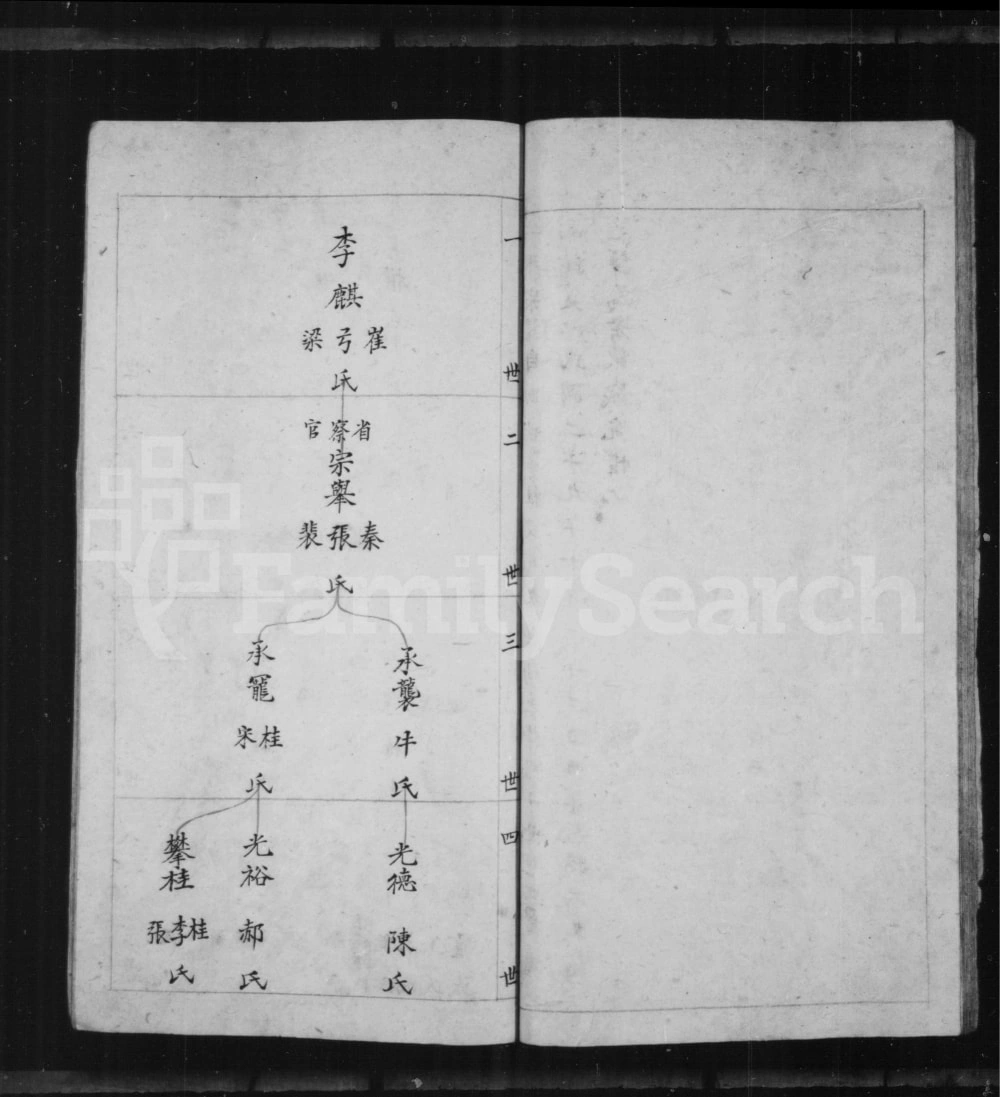 一世
李麒
崔弓梁氏
二世
省祭官
宗舉
秦張裴氏
三世
承襲
牛氏
承寵
桂宋氏
四世
光德
陳氏
光裕
郝氏
攀桂
桂李張氏
FamilySearch